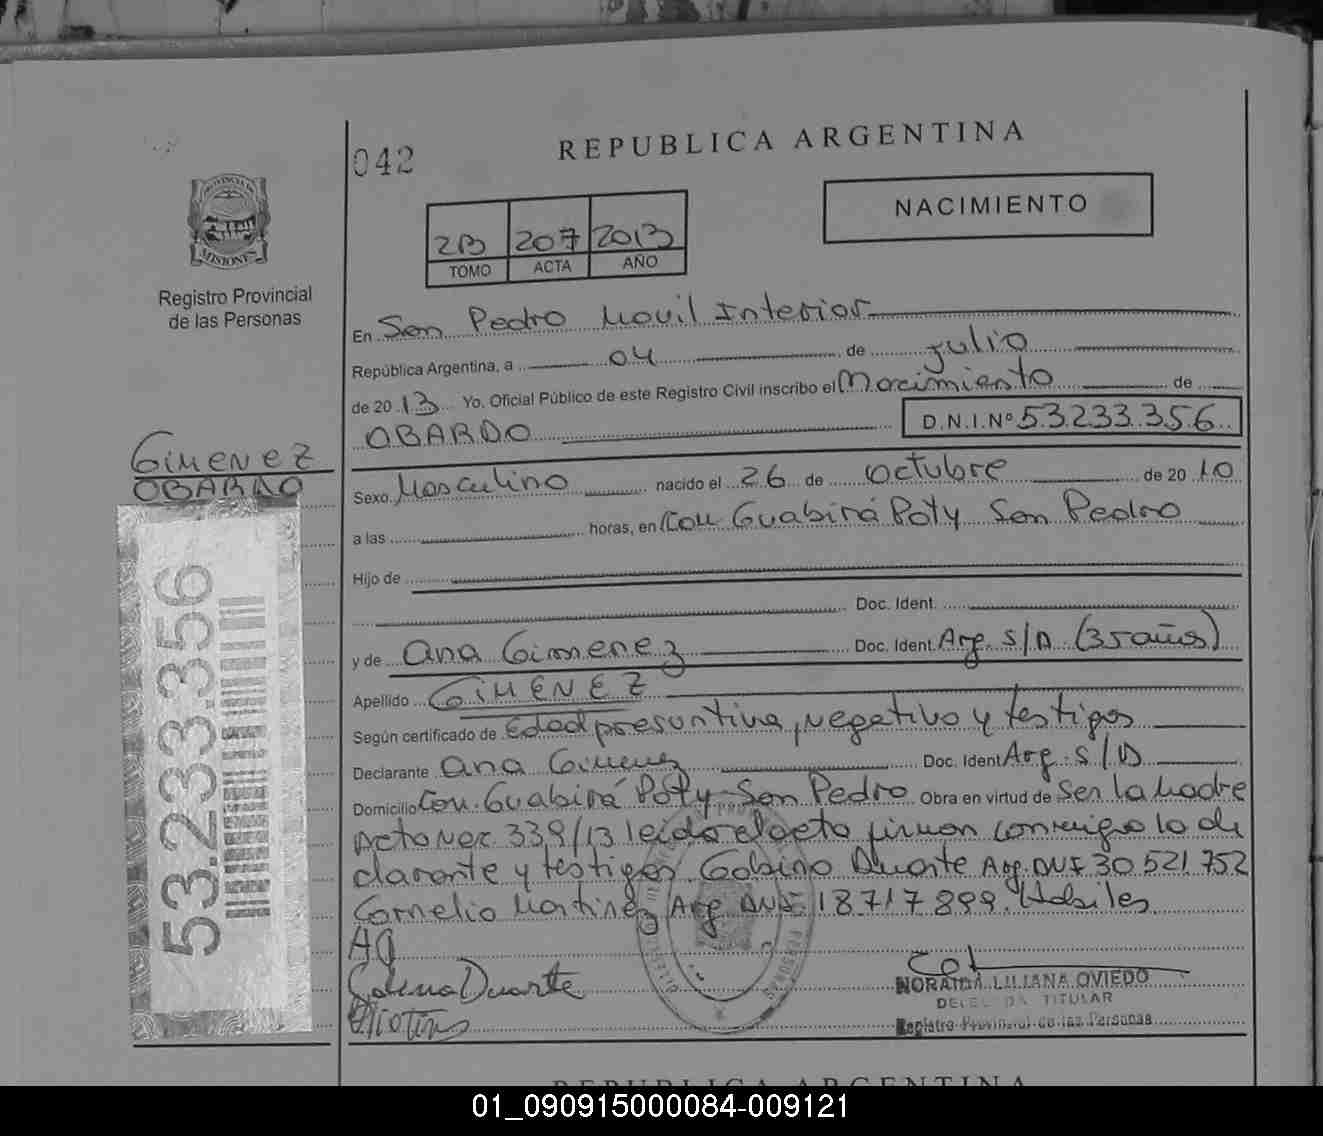 042
REPUBLICA ARGENTINA
PROVINCIA DE
MISIONES
Registro Provincial
de las Personas
NACIMIENTO
2B 207 2013
TOMO ACTA AÑO
En San Pedro Movil Interior
República Argentina, a 04 de Julio
de 2013 Yo, Oficial Público de este Registro Civil inscribo el Nacimiento de
OBARDO D.N.I.Nº 53.233.356
GIMENEZ
OBARDO
Sexo Masculino nacido el 26 de Octubre de 2010
a las horas, en Com Guabirá Poty San Pedro
Hijo de
Doc. Ident.
y de Ana Gimenez Doc. Ident. Arg. S/D (35 años)
Apellido GIMENEZ
Según certificado de Edad presuntiva, negativo y testigos
Declarante Ana Gimenez Doc. Ident Arg. S/D
Domicilio Com. Guabirá Poty San Pedro Obra en virtud de Ser la Madre
Acta Nac. 339/13 leida el acta firman conmigo la de
clarante y testigos Gabino Duarte Arg. DNI 30.521.752
Cornelio Martinez Arg DNI 18.717.899. Habiles
AG
Duarte
NORAIDA LILIANA OVIEDO
DELEGADA TITULAR
Registro Provincial de las Personas
53.233.356
REPUBLICA ARGENTINA
01_090915000084-009121